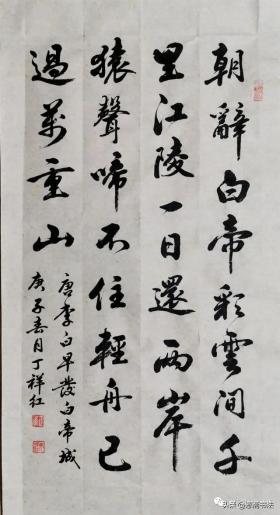 朝辭白帝彩雲間千
里江陵一日還兩岸
猿聲啼不住輕舟已
過萬重山
唐李白早發白帝城
庚子嘉月丁祥红